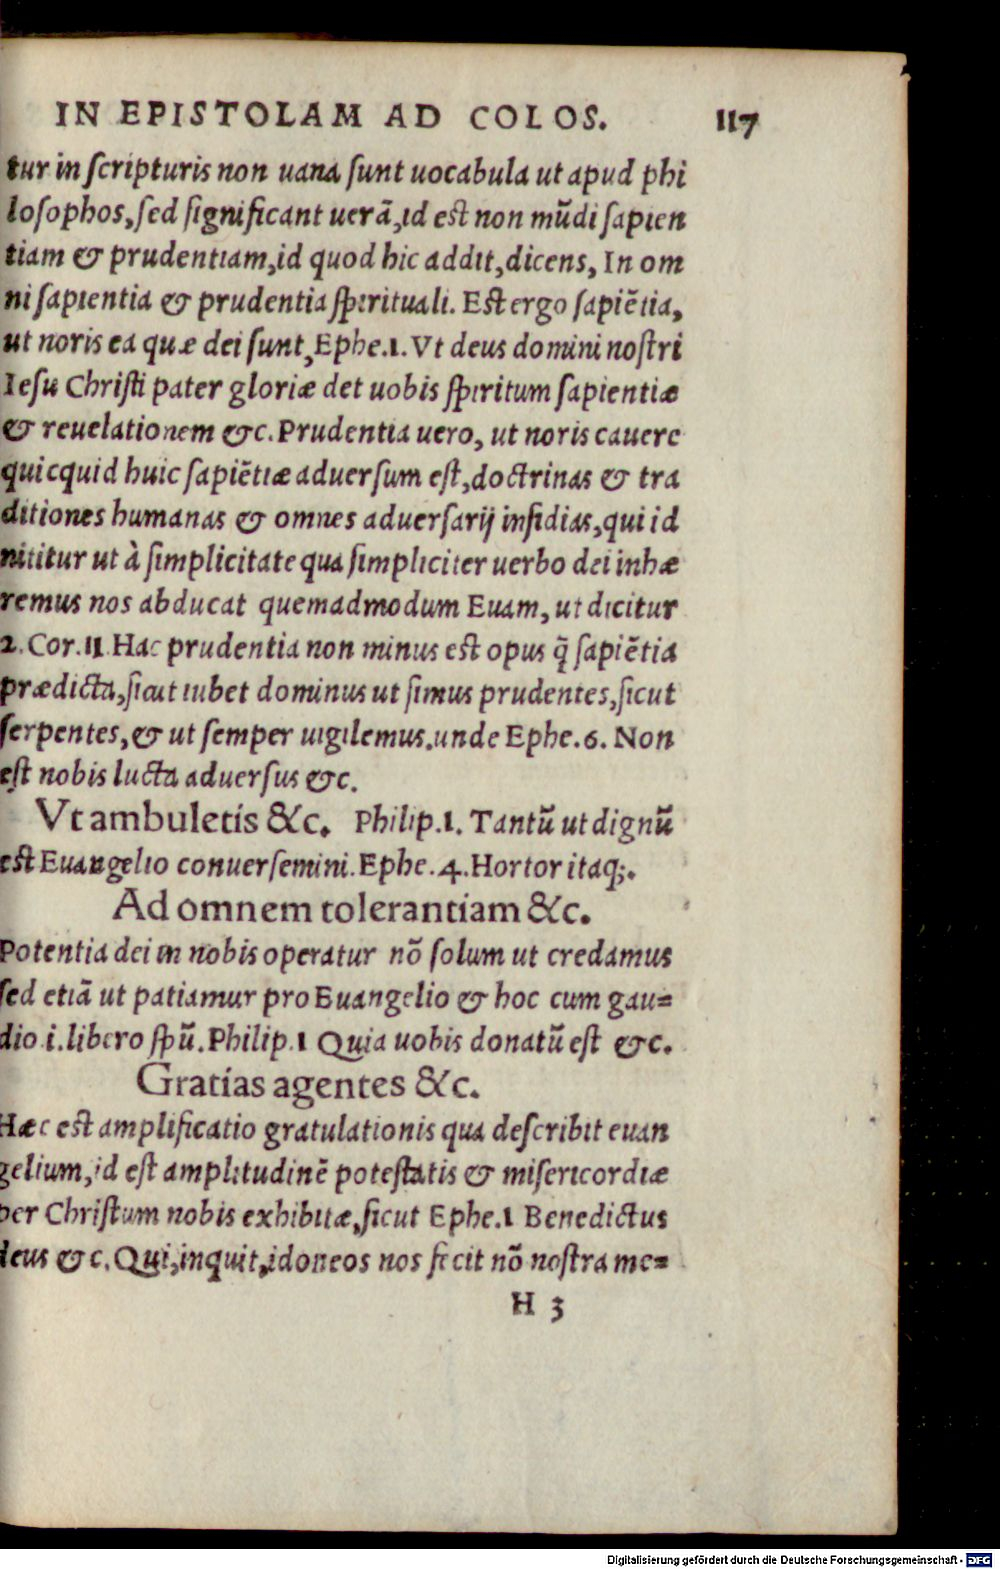 IN EPISTOLAM AD COLOS. 117
tur in scripturis non uana sunt uocabula ut apud phi
losophos, sed significant uerã, id est non mũdi sapien
tiam & prudentiam, id quod hic addit, dicens, In om
ni sapientia & prudentia spirituali. Est ergo sapiẽtia,
ut noris ea quæ dei sunt, Ephe.1. Vt deus domini nostri
Iesu Christi pater gloriæ det uobis spiritum sapientiæ
& reuelationem &c. Prudentia uero, ut noris cauere
quicquid huic sapiẽtiæ aduersum est, doctrinas & tra
ditiones humanas & omnes aduersarij insidias, qui id
nititur ut à simplicitate qua simpliciter uerbo dei inhæ
remus nos abducat quemadmodum Euam, ut dicitur
2. Cor. 11 Hac prudentia non minus est opus q̃ sapiẽtia
prædicta, sicut iubet dominus ut simus prudentes, sicut
serpentes, & ut semper uigilemus. unde Ephe. 6. Non
est nobis lucta aduersus &c.
Vt ambuletis &c. Philip. 1. Tantũ ut dignũ
est Euangelio conuersemini. Ephe. 4. Hortor itaq;.
Ad omnem tolerantiam &c.
Potentia dei in nobis operatur nõ solum ut credamus
sed etiã ut patiamur pro Euangelio & hoc cum gau=
dio .i. libero spũ. Philip. 1 Quia uobis donatũ est &c.
Gratias agentes &c.
Hæc est amplificatio gratulationis qua describit euan
gelium, id est amplitudinẽ potestatis & misericordiæ
per Christum nobis exhibitæ, sicut Ephe. 1 Benedictus
deus &c. Qui, inquit, idoneos nos fecit nõ nostra me=
H 3
Digitalisierung gefördert durch die Deutsche Forschungsgemeinschaft - DFG